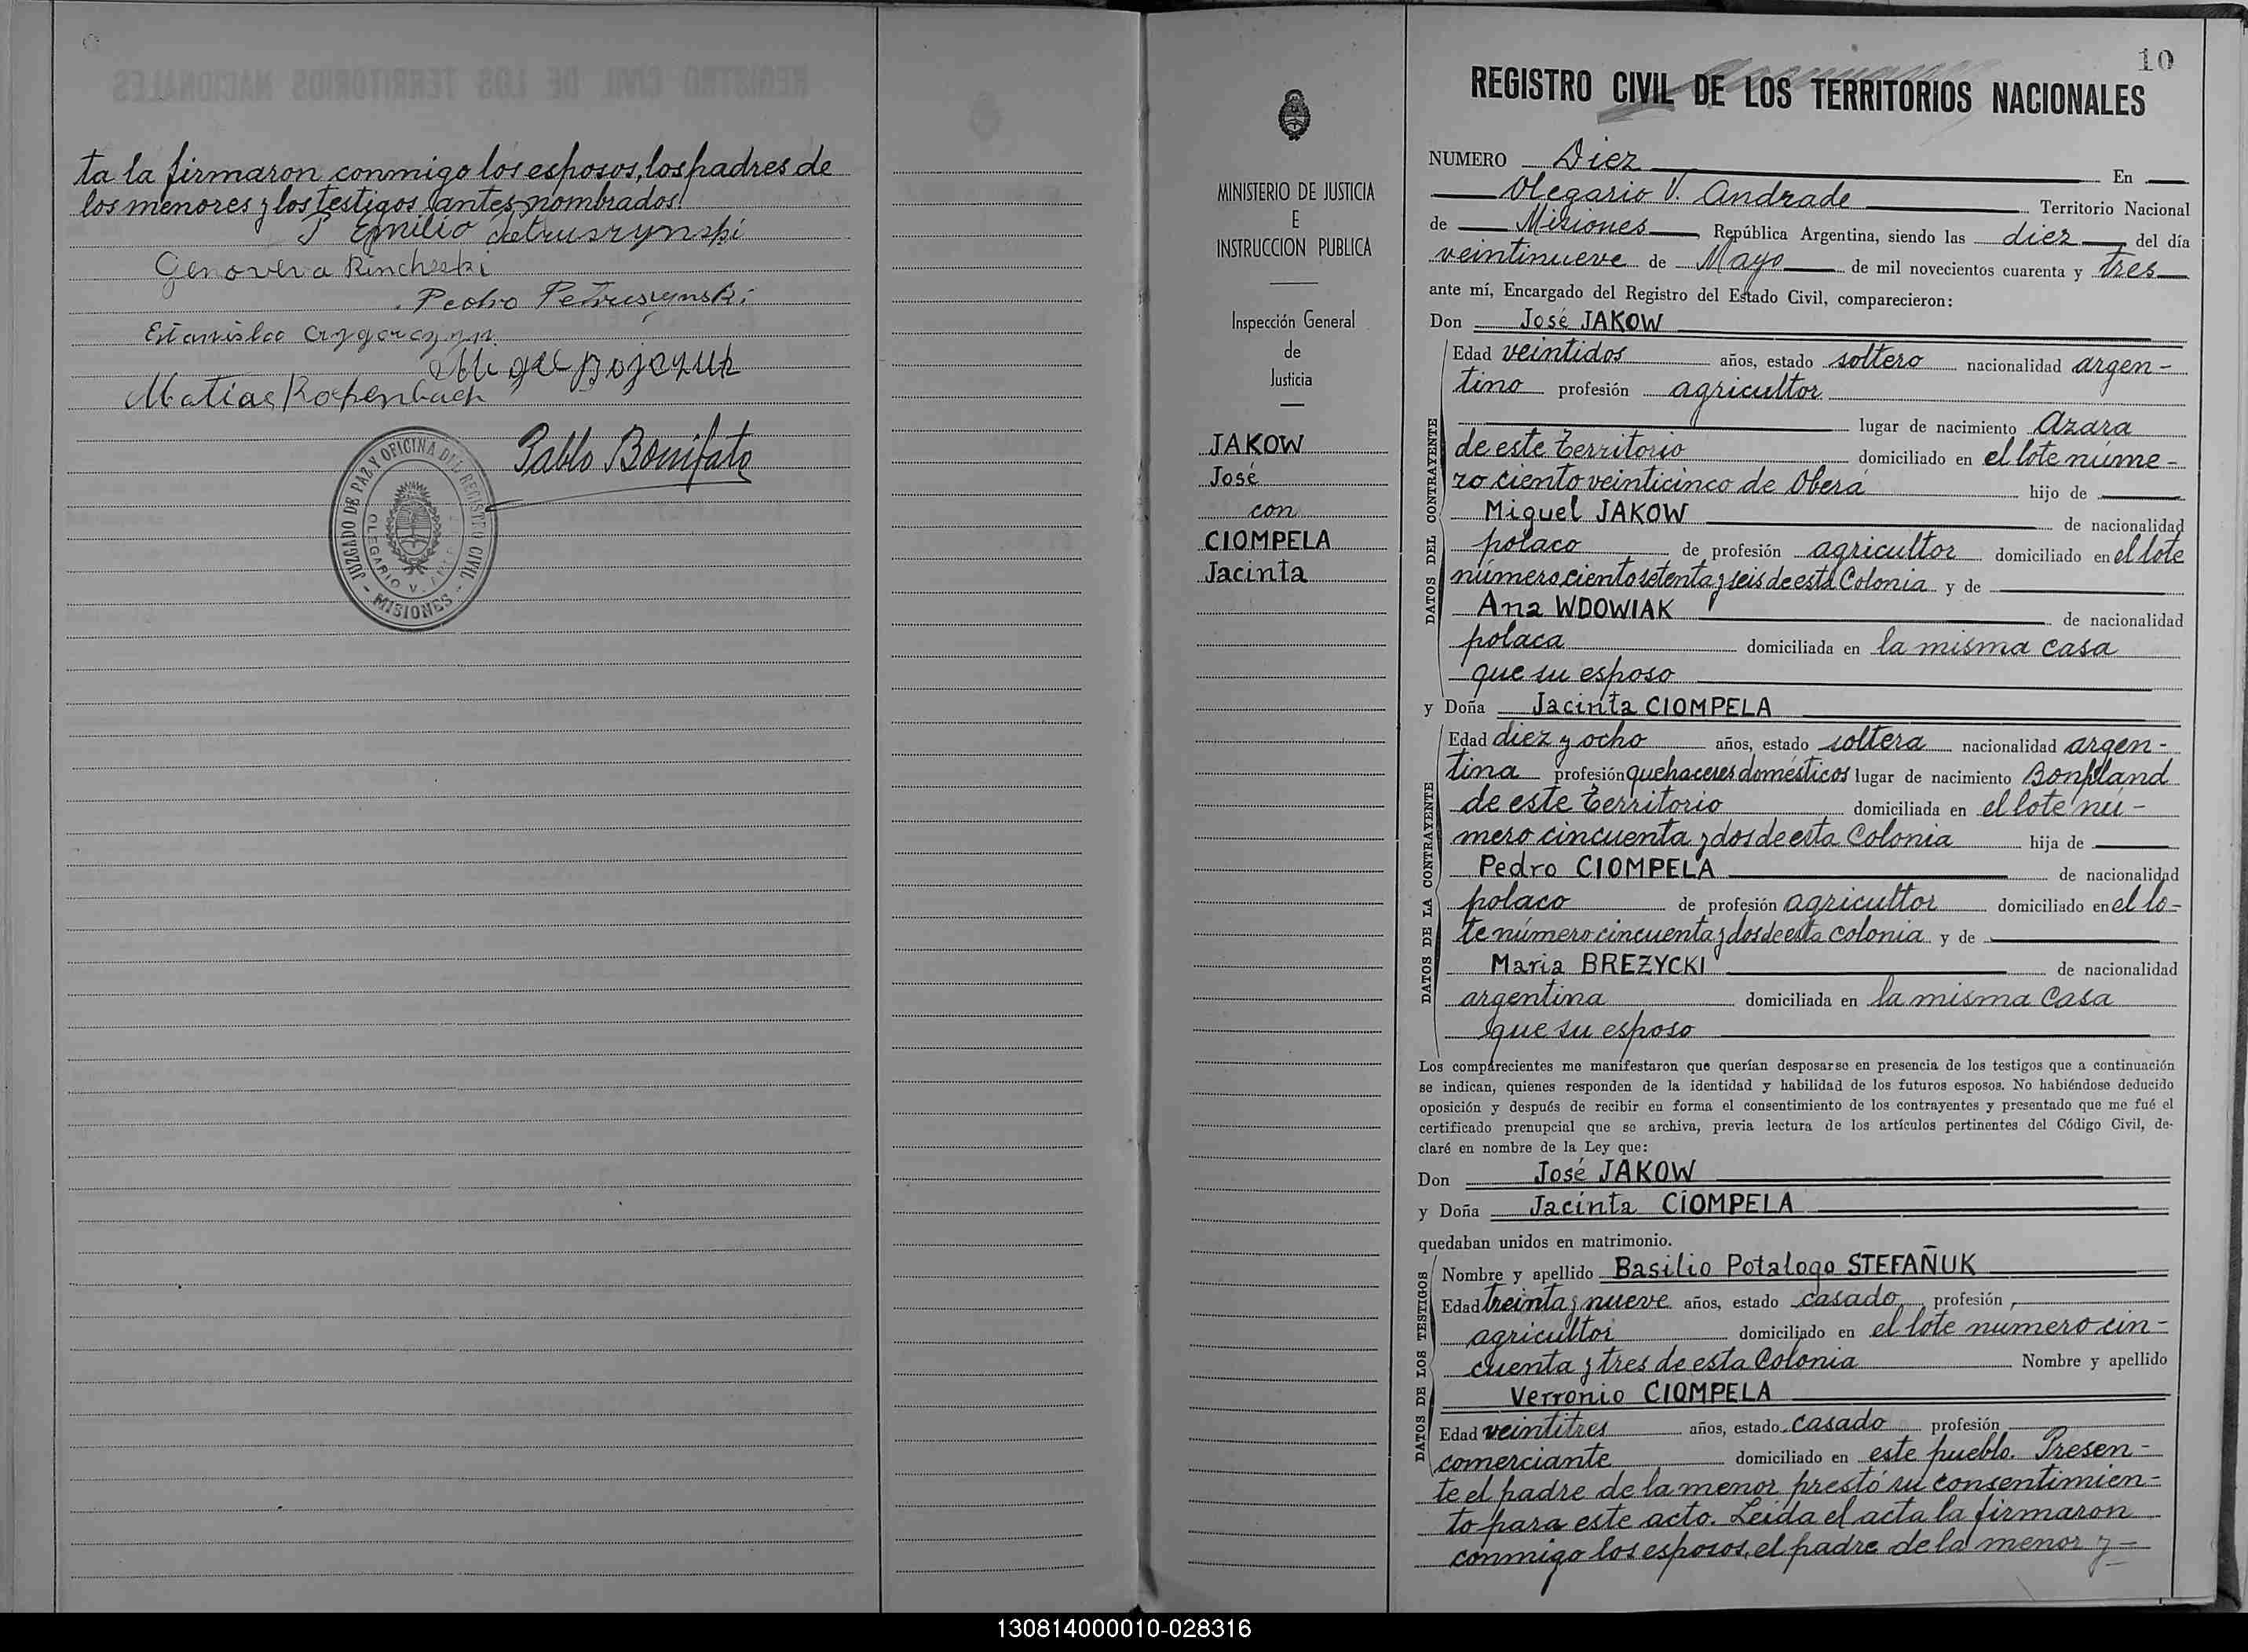 ta la firmaron conmigo los esposos, los padres de
los menores y los testigos antes nombrados.
Emilio Petruszynski
Genoveva Rincheski
Pedro Petruszynski
Estanislao
Matias
Pablo Bonifato
JUZGADO DE PAZ Y OFICINA DEL REGISTRO CIVIL
OLEGARIO V.
- MISIONES -
MINISTERIO DE JUSTICIA
E
INSTRUCCION PUBLICA
Inspección General
de
Justicia
JAKOW
José
con
CIOMPELA
Jacinta
10
REGISTRO CIVIL DE LOS TERRITORIOS NACIONALES
NUMERO Diez En
Olegario V. Andrade Territorio Nacional
de Misiones, República Argentina, siendo las diez del día
veintinueve de Mayo de mil novecientos cuarenta y tres
ante mí, Encargado del Registro del Estado Civil, comparecieron:
Don José JAKOW
DATOS DEL CONTRAYENTE
Edad veintidos años, estado soltero nacionalidad argen-
tino profesión agricultor
lugar de nacimiento Azara
de este Territorio domiciliado en el lote núme-
ro ciento veinticinco de Oberá hijo de
Miguel JAKOW de nacionalidad
polaco de profesión agricultor domiciliado en el lote
número ciento setenta y seis de esta Colonia y de
Ana WDOWIAK de nacionalidad
polaca domiciliada en la misma casa
que su esposo
y Doña Jacinta CIOMPELA
DATOS DE LA CONTRAYENTE
Edad diez y ocho años, estado soltera nacionalidad argen-
tina profesión quehaceres domésticos lugar de nacimiento Bonpland
de este Territorio domiciliada en el lote nú-
mero cincuenta y dos de esta Colonia hija de
Pedro CIOMPELA de nacionalidad
polaco de profesión agricultor domiciliado en el lo-
te número cincuenta y dos de esta colonia y de
Maria BREZYCKI de nacionalidad
argentina domiciliada en la misma casa
que su esposo
Los comparecientes me manifestaron que querían desposarse en presencia de los testigos que a continuación
se indican, quienes responden de la identidad y habilidad de los futuros esposos. No habiéndose deducido
oposición y después de recibir en forma el consentimiento de los contrayentes y presentado que me fué el
certificado prenupcial que se archiva, previa lectura de los artículos pertinentes del Código Civil, de-
claré en nombre de la Ley que:
Don José JAKOW
y Doña Jacinta CIOMPELA
quedaban unidos en matrimonio.
DATOS DE LOS TESTIGOS
Nombre y apellido Basilio Potalogo STEFAÑUK
Edad treinta y nueve años, estado casado profesión
agricultor domiciliado en el lote numero cin-
cuenta y tres de esta Colonia Nombre y apellido
Verronio CIOMPELA
Edad veintitres años, estado casado profesión
comerciante domiciliado en este pueblo. Presen-
te el padre de la menor prestó su consentimien-
to para este acto. Leida el acta la firmaron
conmigo los esposos, el padre de la menor y
130814000010-028316